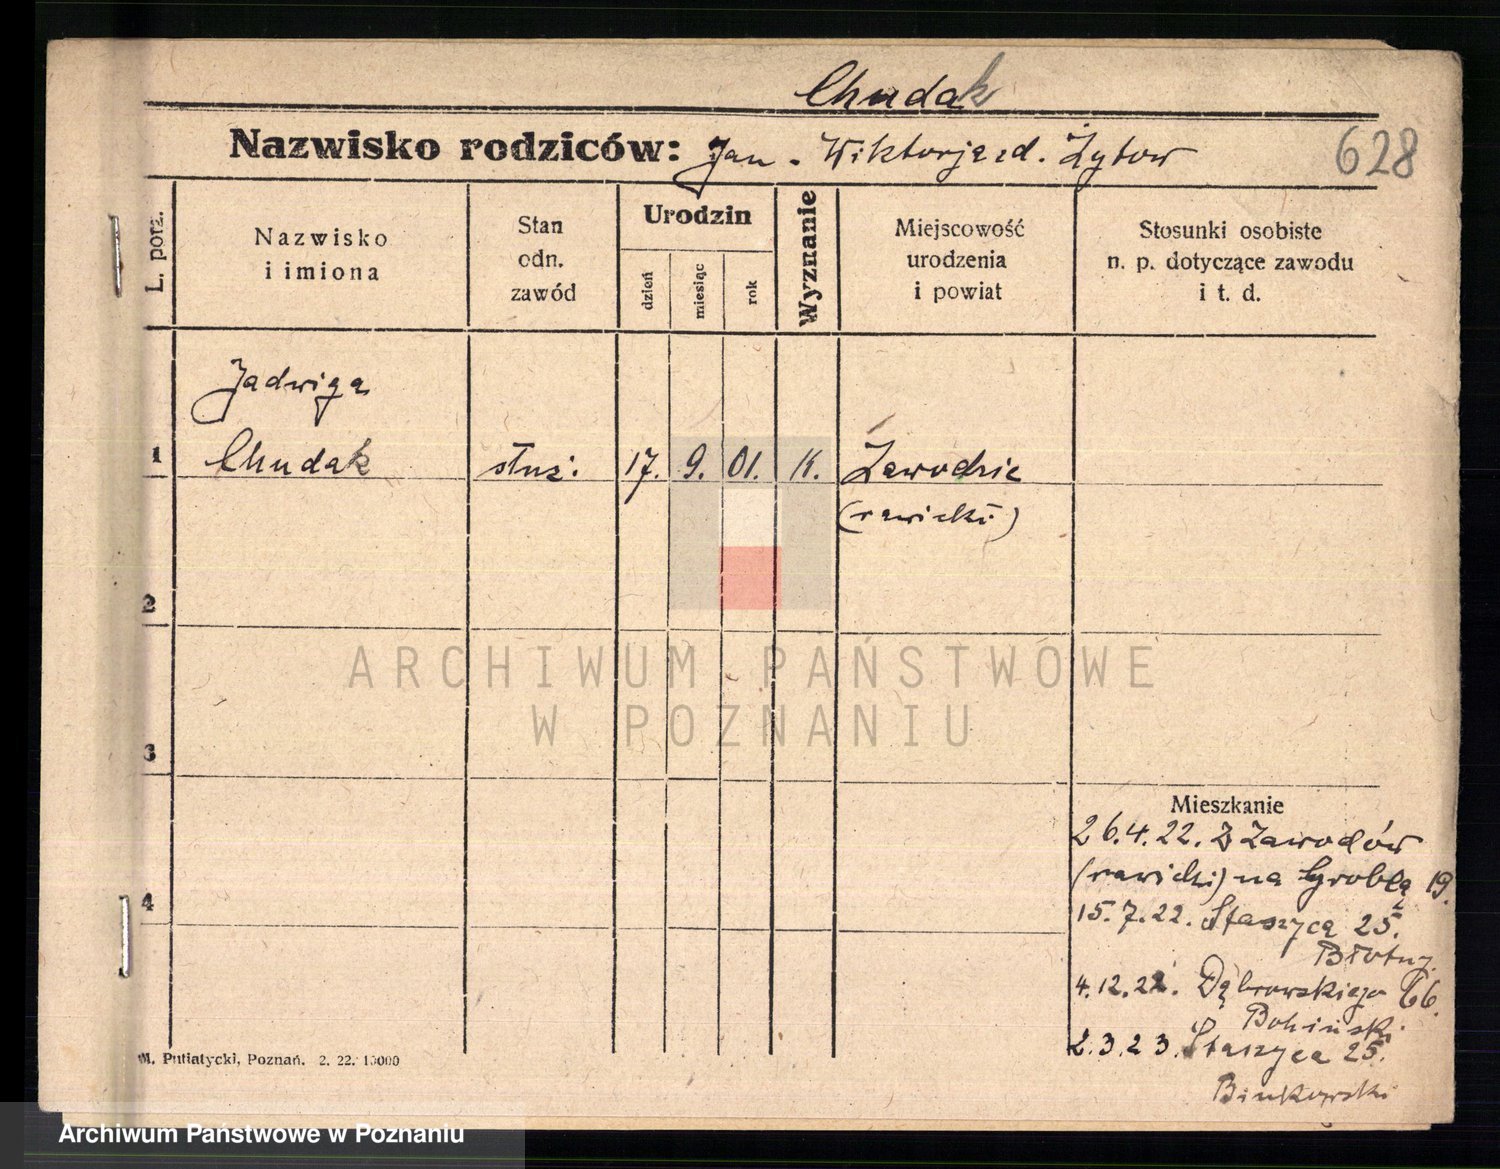 Chudak
Nazwisko rodziców: Jan - Wiktorja zd. Żytow
628
L. porz.
Nazwisko
i imiona
Stan
odn.
zawód
Urodzin
dzień
miesiąc
rok
Wyznanie
Miejscowość
urodzenia
i powiat
Stosunki osobiste
n. p. dotyczące zawodu
i t. d.
Jadwiga
1 Chudak służ. 17. 9. 01. K. Zawodzie
(rawicki)
2
ARCHIWUM PAŃSTWOWE
W POZNANIU
3
Mieszkanie
26.4.22. z Zawodów
(rawicki) na Groblą 19.
4
15.7.22. Staszyca 25.
Błotny
4.12.22. Dąbrowskiego 66.
Bohiński
2.3.23. Staszyca 25.
Binkowski
M. Putiatycki, Poznań. 2. 22. 10000
Archiwum Państwowe w Poznaniu